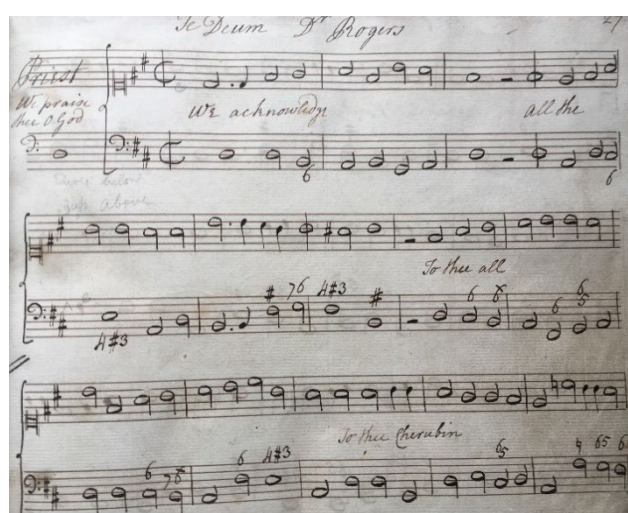 Te Deum Dr Rogers 27
Priest
We praise
thee O God
We acknowledge
all the
6 6
To thee all
# 76 4#3 # 6 6 6
4#3 6 5
To thee Cherubin
6 76 6 4#3 65 4 65 6